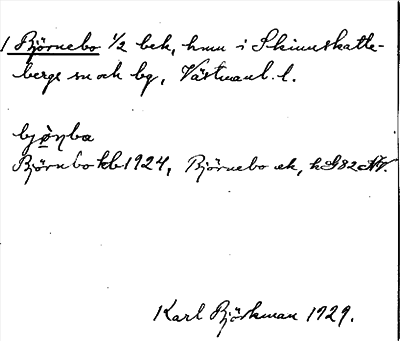 1 Björnebo 1/2 bek, hmn i Skinnskatte-
bergs sn och bg, Västmanl. l.
bjö̱ṇba
Björnbo kb 1924, Björnebo ek, k G82 NV.
Karl Björkman 1929.